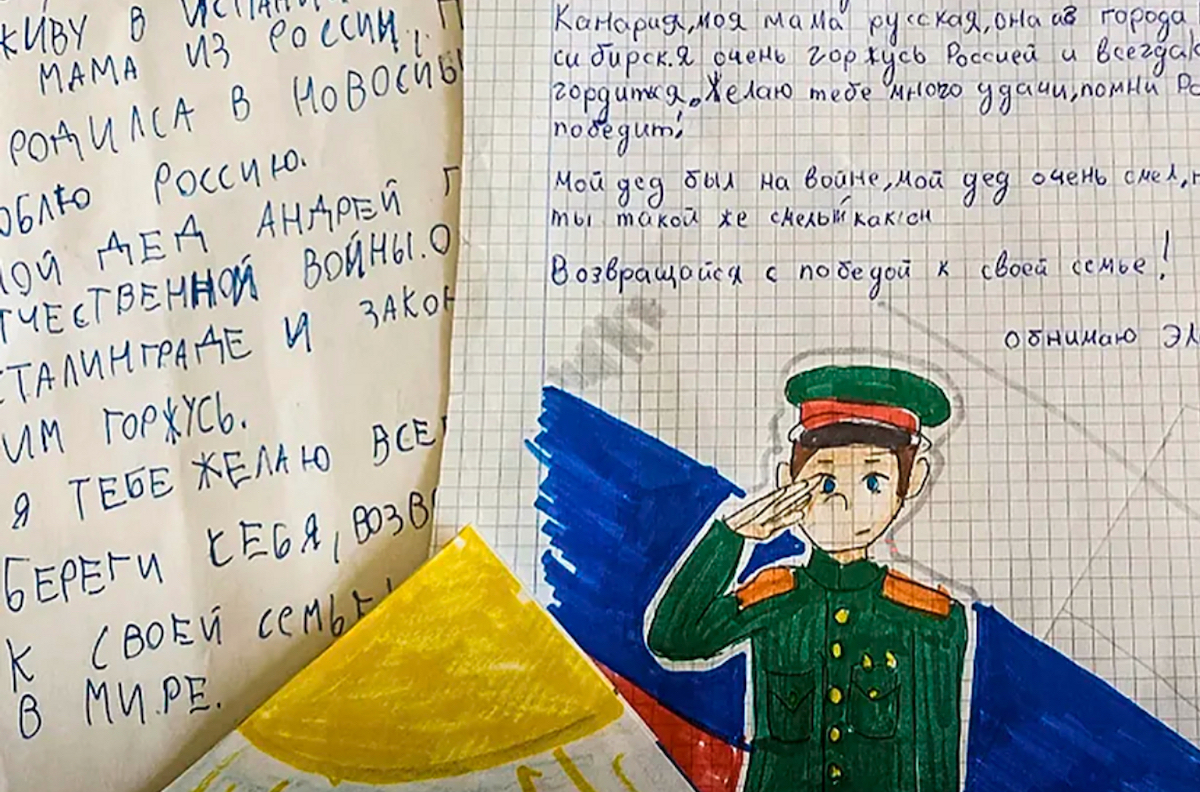 ЖИВУ В ИСПАНИ
МАМА ИЗ РОССИИ,
РОДИЛСА В НОВОСИБИ
ЮБЛЮ РОССИЮ.
МОЙ ДЕД АНДРЕЙ П
ТЧЕСТВЕННОЙ ВОЙНЫ.О
СТАЛИНГРАДЕ И ЗАКОН
ИМ ГОРЖУСЬ.
Я ТЕБЕ ЖЕЛАЮ ВСЕГ
БЕРЕГИ СЕБЯ, ВОЗВ
К СВОЕЙ СЕМЬЕ!
В МИ.РЕ.
Канария,моя мама русская,она из города
сибирск.я очень горжусь Россией и всегда
гордится.Желаю тебе много удачи,помни Ро
победит!
Мой дед был на войне,мой дед очень смел,
ты такой же смелый как он
Возвращайся с победой к своей семье!
обнимаю ЭЛ